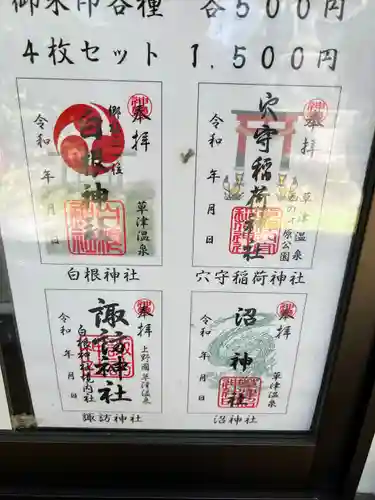 御朱印各種 各500円
4枚セット 1,500円
奉拝
白根神社
令和 年 月 日
草津温泉
白根神社
奉拝
穴守稲荷神社
令和 年 月 日
草津温泉
西の河原公園
穴守稲荷神社
奉拝
諏訪神社
上野國草津温泉
白根神社境内社
令和 年 月 日
諏訪神社
奉拝
沼神社
草津温泉
令和 年 月 日
沼神社